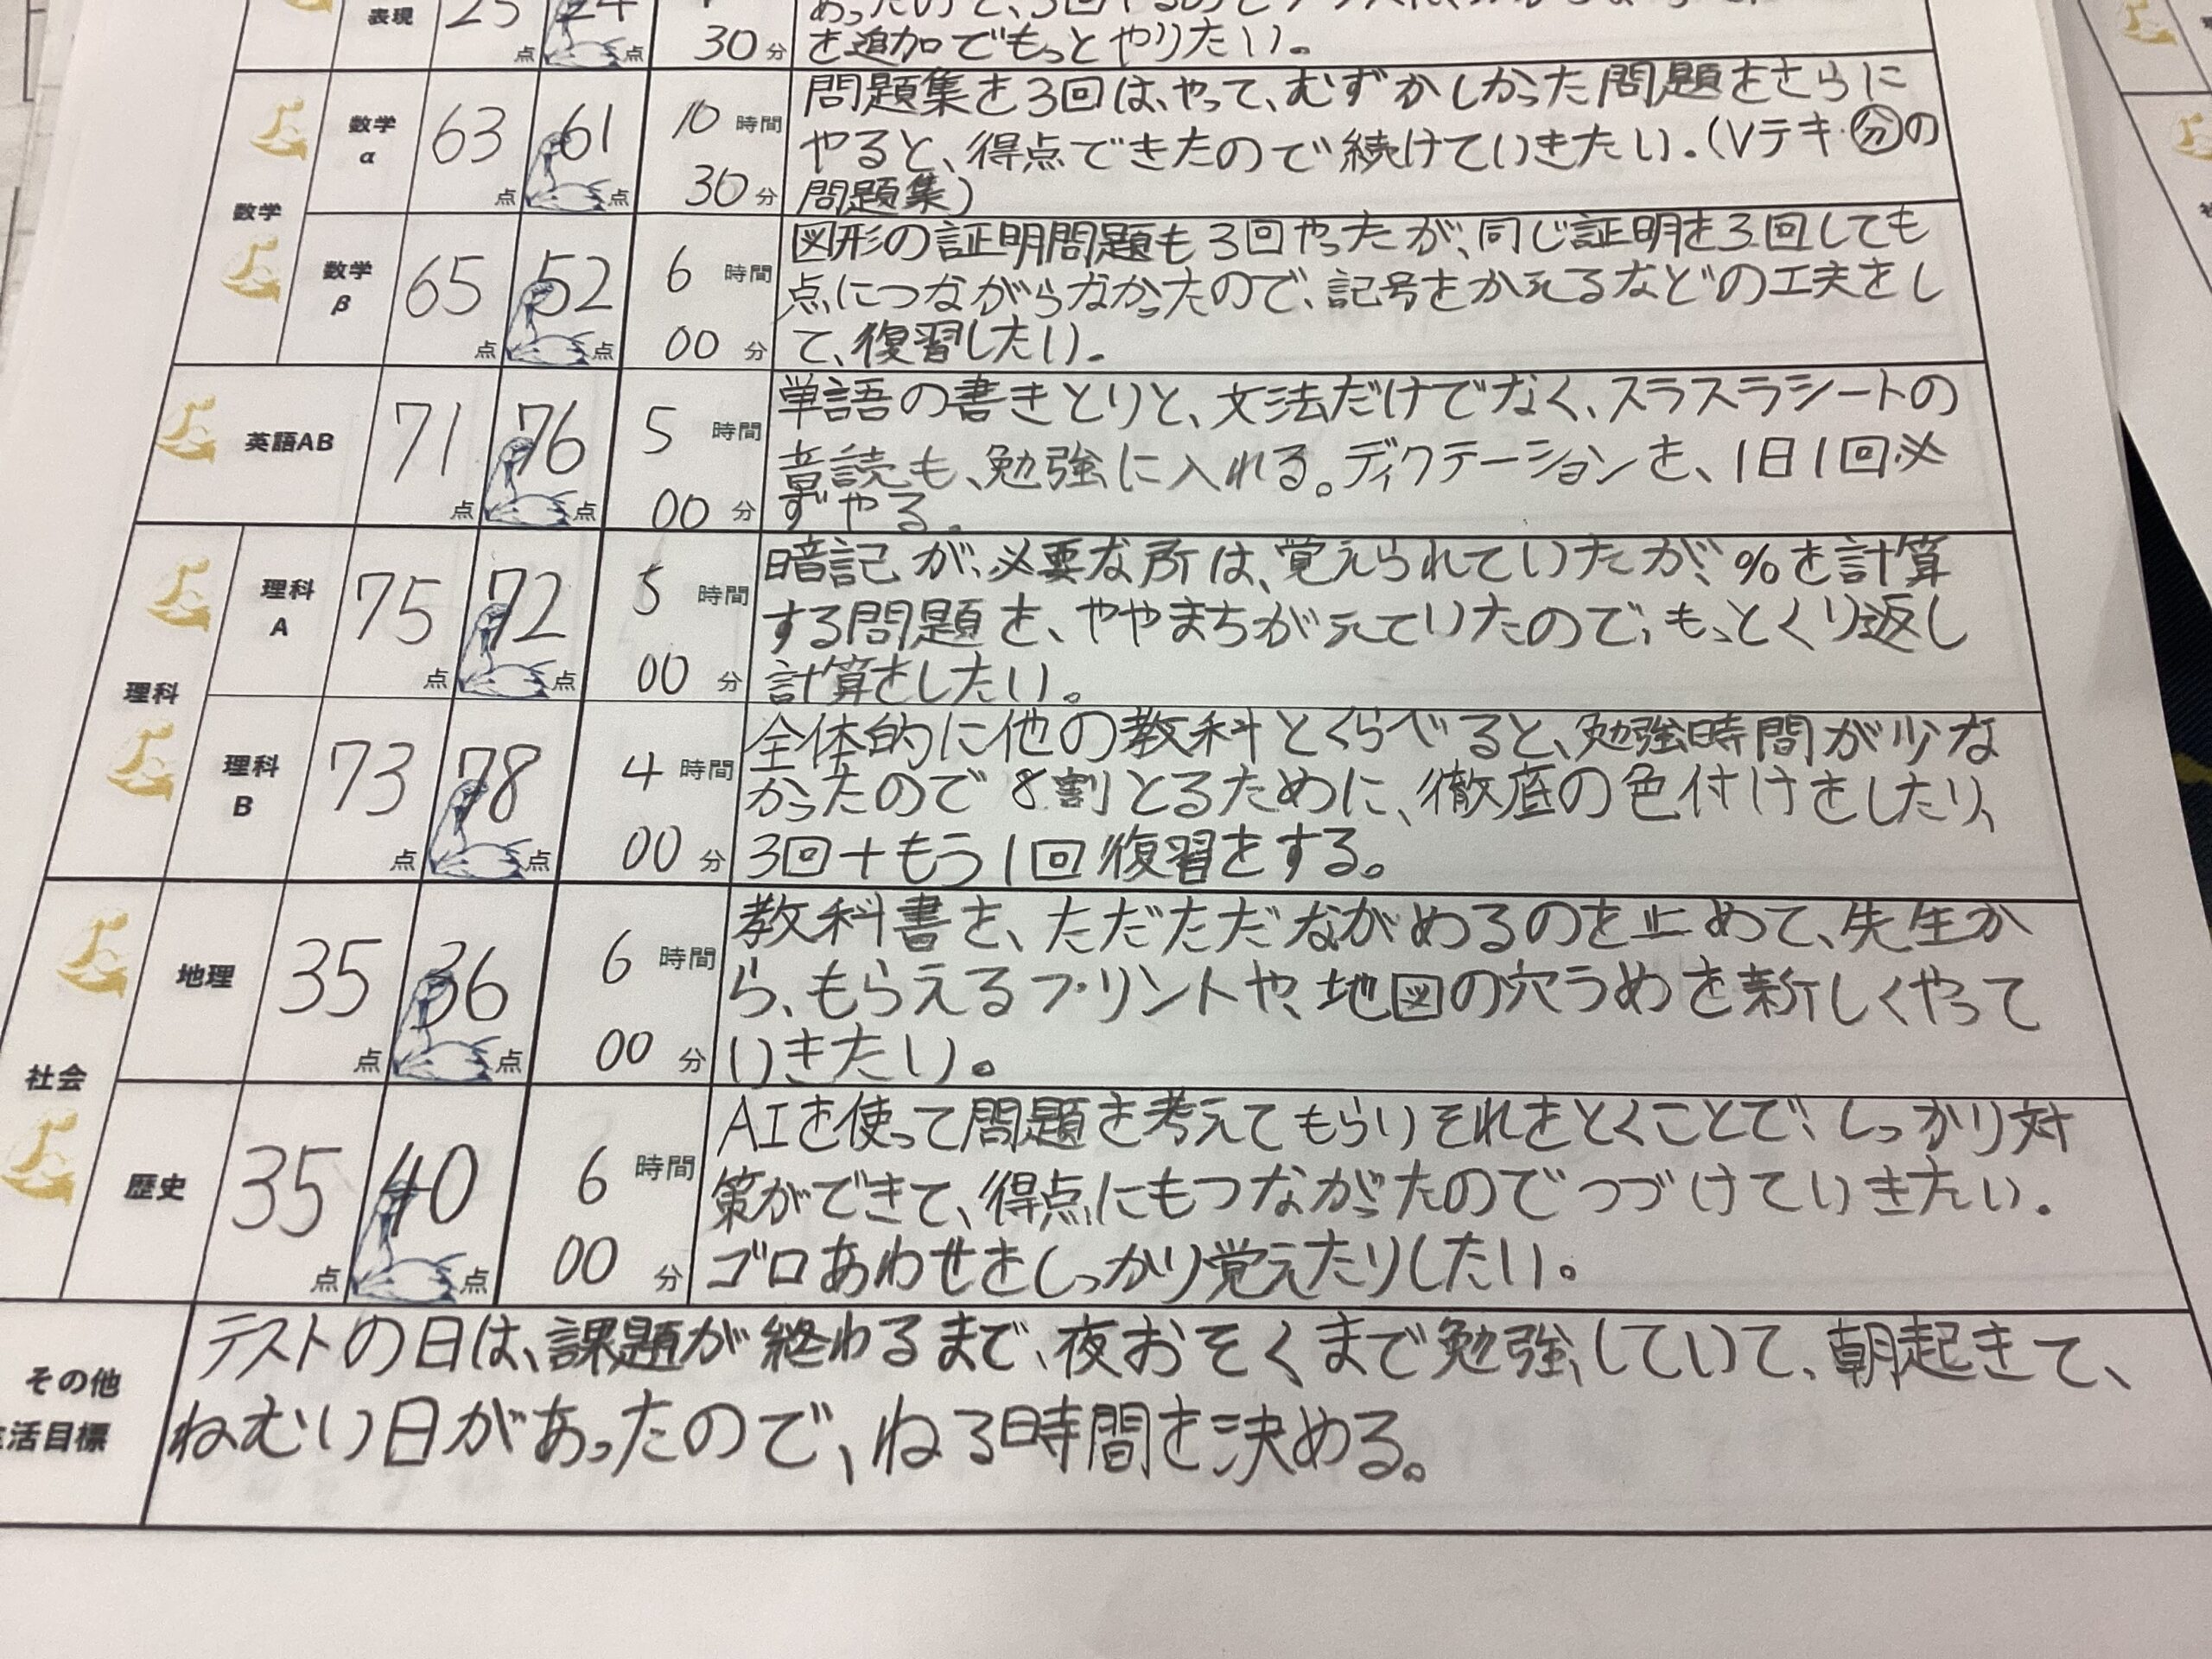 表現 25点 24点
30分
を追加でもっとやりたい。
数学
数学α 63点 61点 10時間30分
問題集を3回は、やって、むずかしかった問題をさらに
やると、得点できたので続けていきたい。(Vテキ・分の
問題集)
数学β 65点 52点 6時間00分
図形の証明問題も3回やったが、同じ証明を3回しても
点につながらなかったので、記号をかえるなどの工夫をし
て、復習したい。
英語AB 71点 76点 5時間00分
単語の書きとりと、文法だけでなく、スラスラシートの
音読も、勉強に入れる。ディクテーションを、1日1回必
ずやる。
理科
理科A 75点 72点 5時間00分
暗記が、必要な所は、覚えられていたが、%を計算
する問題を、ややまちがえていたので、もっとくり返し
計算をしたい。
理科B 73点 78点 4時間00分
全体的に他の教科とくらべると、勉強時間が少な
かったので8割とるために、徹底の色付けをしたり、
3回+もう1回復習をする。
社会
地理 35点 36点 6時間00分
教科書を、ただただながめるのを止めて、先生か
ら、もらえるプリントや、地図の穴うめを新しくやって
いきたい。
歴史 35点 40点 6時間00分
AIを使って問題を考えてもらいそれをとくことで、しっかり対
策ができて、得点にもつながったのでつづけていきたい。
ゴロあわせをしっかり覚えたりしたい。
その他
活目標
テストの日は、課題が終わるまで、夜おそくまで勉強していて、朝起きて、
ねむい日があったので、ねる時間を決める。